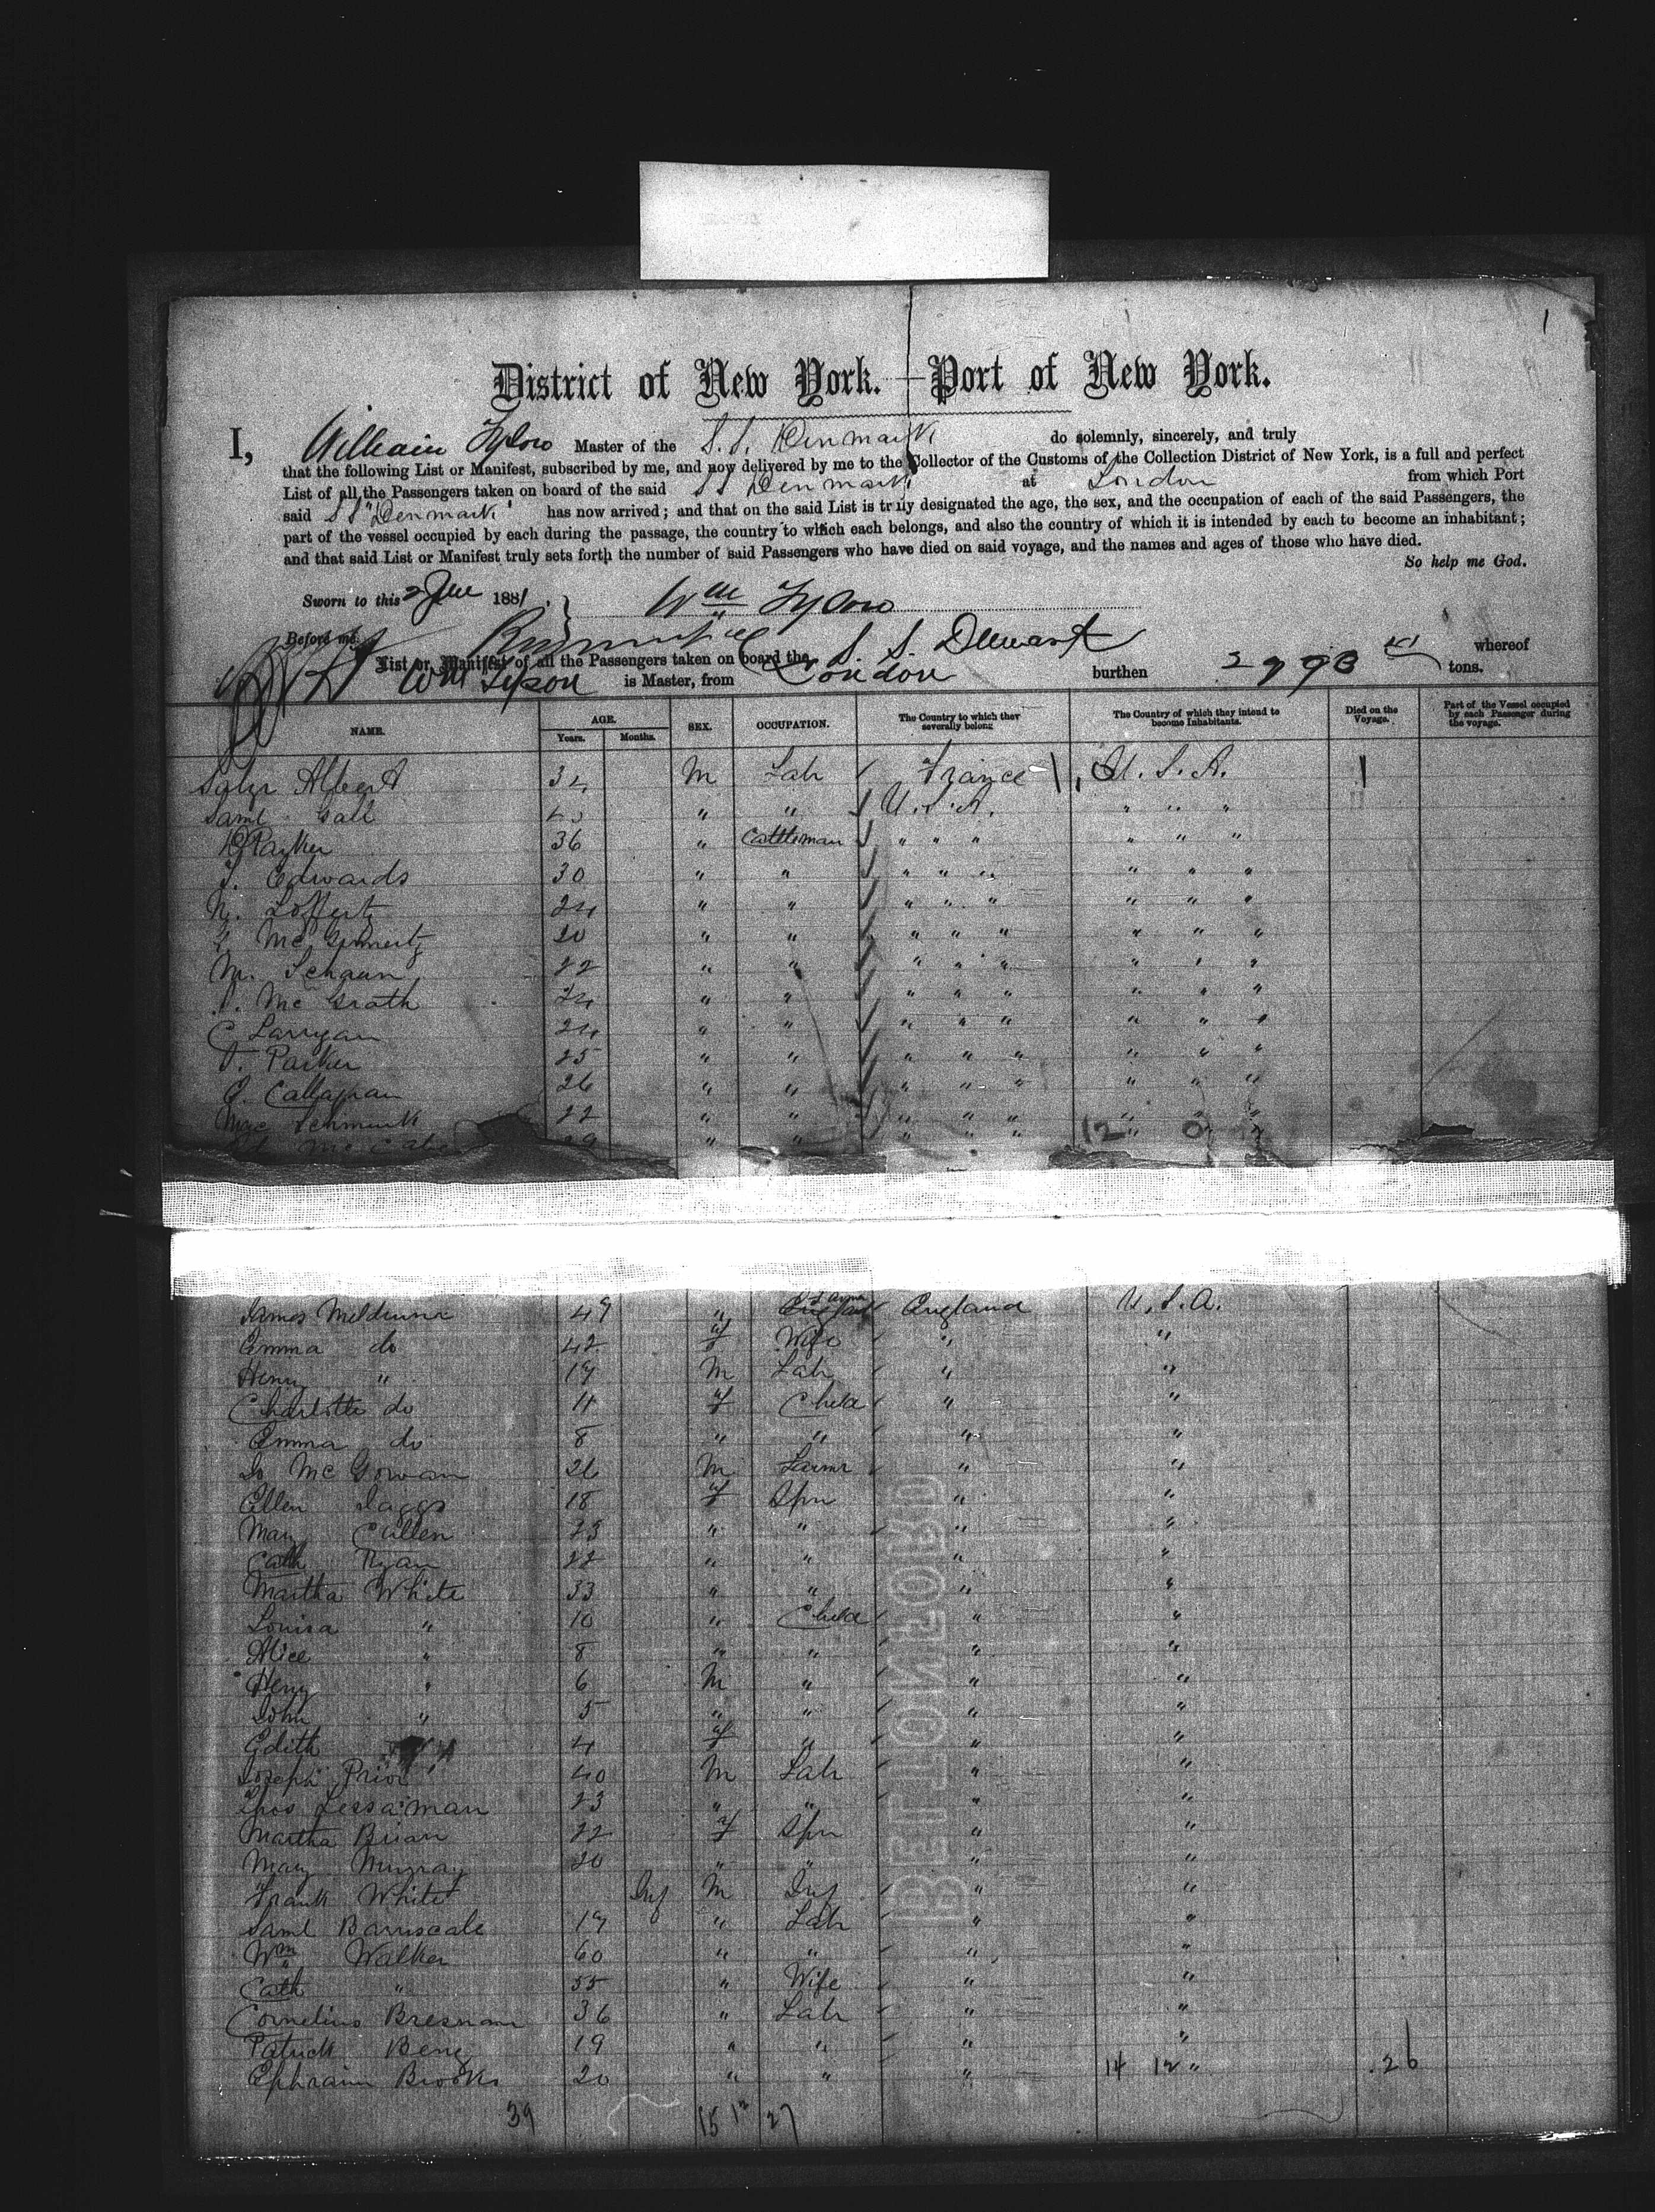 1
District of New York. Port of New York.
I, William Tyson Master of the S.S. Denmark do solemnly, sincerely, and truly
that the following List or Manifest, subscribed by me, and now delivered by me to the Collector of the Customs of the Collection District of New York, is a full and perfect
List of all the Passengers taken on board of the said SS Denmark at London from which Port
said SS "Denmark" has now arrived; and that on the said List is truly designated the age, the sex, and the occupation of each of the said Passengers, the
part of the vessel occupied by each during the passage, the country to which each belongs, and also the country of which it is intended by each to become an inhabitant;
and that said List or Manifest truly sets forth the number of said Passengers who have died on said voyage, and the names and ages of those who have died.
So help me God.
Sworn to this 2 1881 Wm Tyson
Before me
List or Manifest of all the Passengers taken on board the S. S. Denmark whereof
Wm Tyson is Master, from London burthen tons.
NAME. AGE. Years. Months. SEX. OCCUPATION. The Country to which they severally belong The Country of which they intend to become Inhabitants. Died on the Voyage. Part of the Vessel occupied by each Passenger during the voyage.
Albert 34 M Lab France U.S.A. 1
Saml Gall " " U.S.A. " " "
Parker 36 " Cattleman " " " " " "
J. Edwards 30 " " " " " " " "
24 " " " " " " " "
20 " " " " " " " "
M. 22 " " " " " " " "
Mc Grath 24 " " " " " " " "
C Larrgan 24 " " " " " " " "
T. Parker 25 " " " " " " " "
Callaghan 26 " " " " " " " "
22 " " " " " " " "
" " " " " 12 " 0 " "
James Meldrum 49 " England U.S.A.
Emma do 42 f Wife " "
Henry " 19 M Lab " "
Charlotte do 11 f Child " "
Emma do 8 " " " "
Jo Mc Gowan 26 M " "
Ellen Jaggs 18 f Spn " "
Mary Cullen 23 " " " "
Cath Ryan 22 " " " "
Martha White 33 " " " "
Louisa " 10 " Child " "
Alice " 8 " " " "
Heny " 6 M " " "
John " 5 " " " "
Edith 4 f " " "
Joseph Prior 40 M Lab " "
Thos Lessaman 23 " " " "
Martha Brian 22 f Spn " "
Mary Murray 20 " " " "
Frank White Inf M Inf " "
Saml Barriscale 19 " Lab " "
Wm Walker 60 " " " "
Cath " 55 " Wife " "
Cornelius Bresnan 36 " Lab " "
Patrick Beng 19 " " " "
Ephraim Brooks 20 " " " 14 12 " 26
39 15 12 27
BETTONFORD